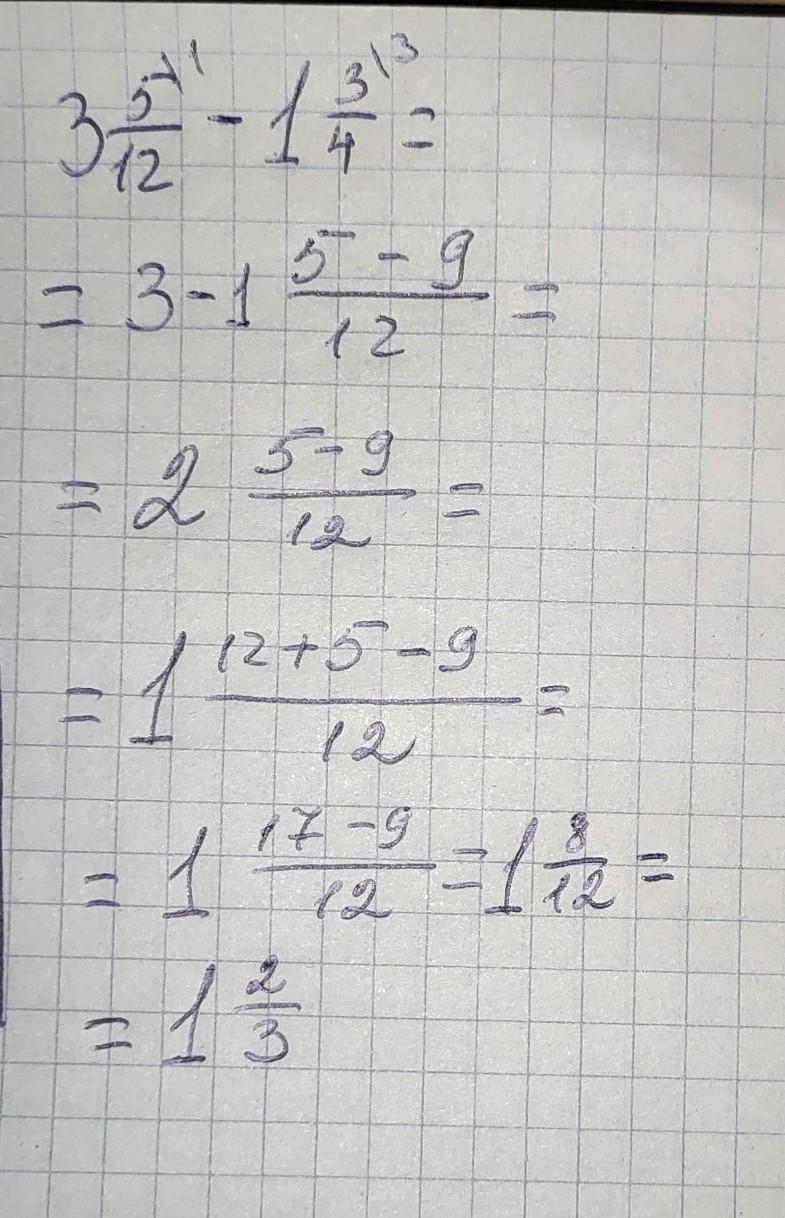 3 5\1/12 - 1 3\3/4 =
= 3 - 1 5 - 9/12 =
= 2 5 - 9/12 =
= 1 12 + 5 - 9/12 =
= 1 17 - 9/12 = 1 8/12 =
= 1 2/3